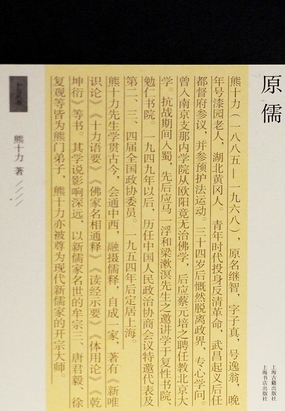 原儒
上海古籍出版社
上海书店出版社
熊十力(一八八五——一九六八),原名继智,字子真,号逸翁,晚
年号漆园老人,湖北黄冈人。青年时代投身反清革命,武昌起义后任
都督府参议,并参预护法运动。三十四岁后慨然脱离政界,专心学问。
曾入南京支那内学院从欧阳竟无治佛学,后应蔡元培之聘任教北京大
学。抗战期间入蜀,先后应马一浮和梁漱溟先生之邀讲学于复性书院、
勉仁书院。一九四九年以后,历任中国人民政治协商会议特邀代表及
第二、三、四届全国政协委员。一九五四年后定居上海。
熊十力先生学贯古今,会通中西,融摄儒释,自成一家,著有《新唯
识论》《十力语要》《佛家名相通释》《读经示要》《体用论》《乾
坤衍》等书。其学说影响深远,以新儒家名世的牟宗三、唐君毅、徐
复观等皆为熊门弟子,熊十力亦被尊为现代新儒家的开宗大师。
熊十力 著